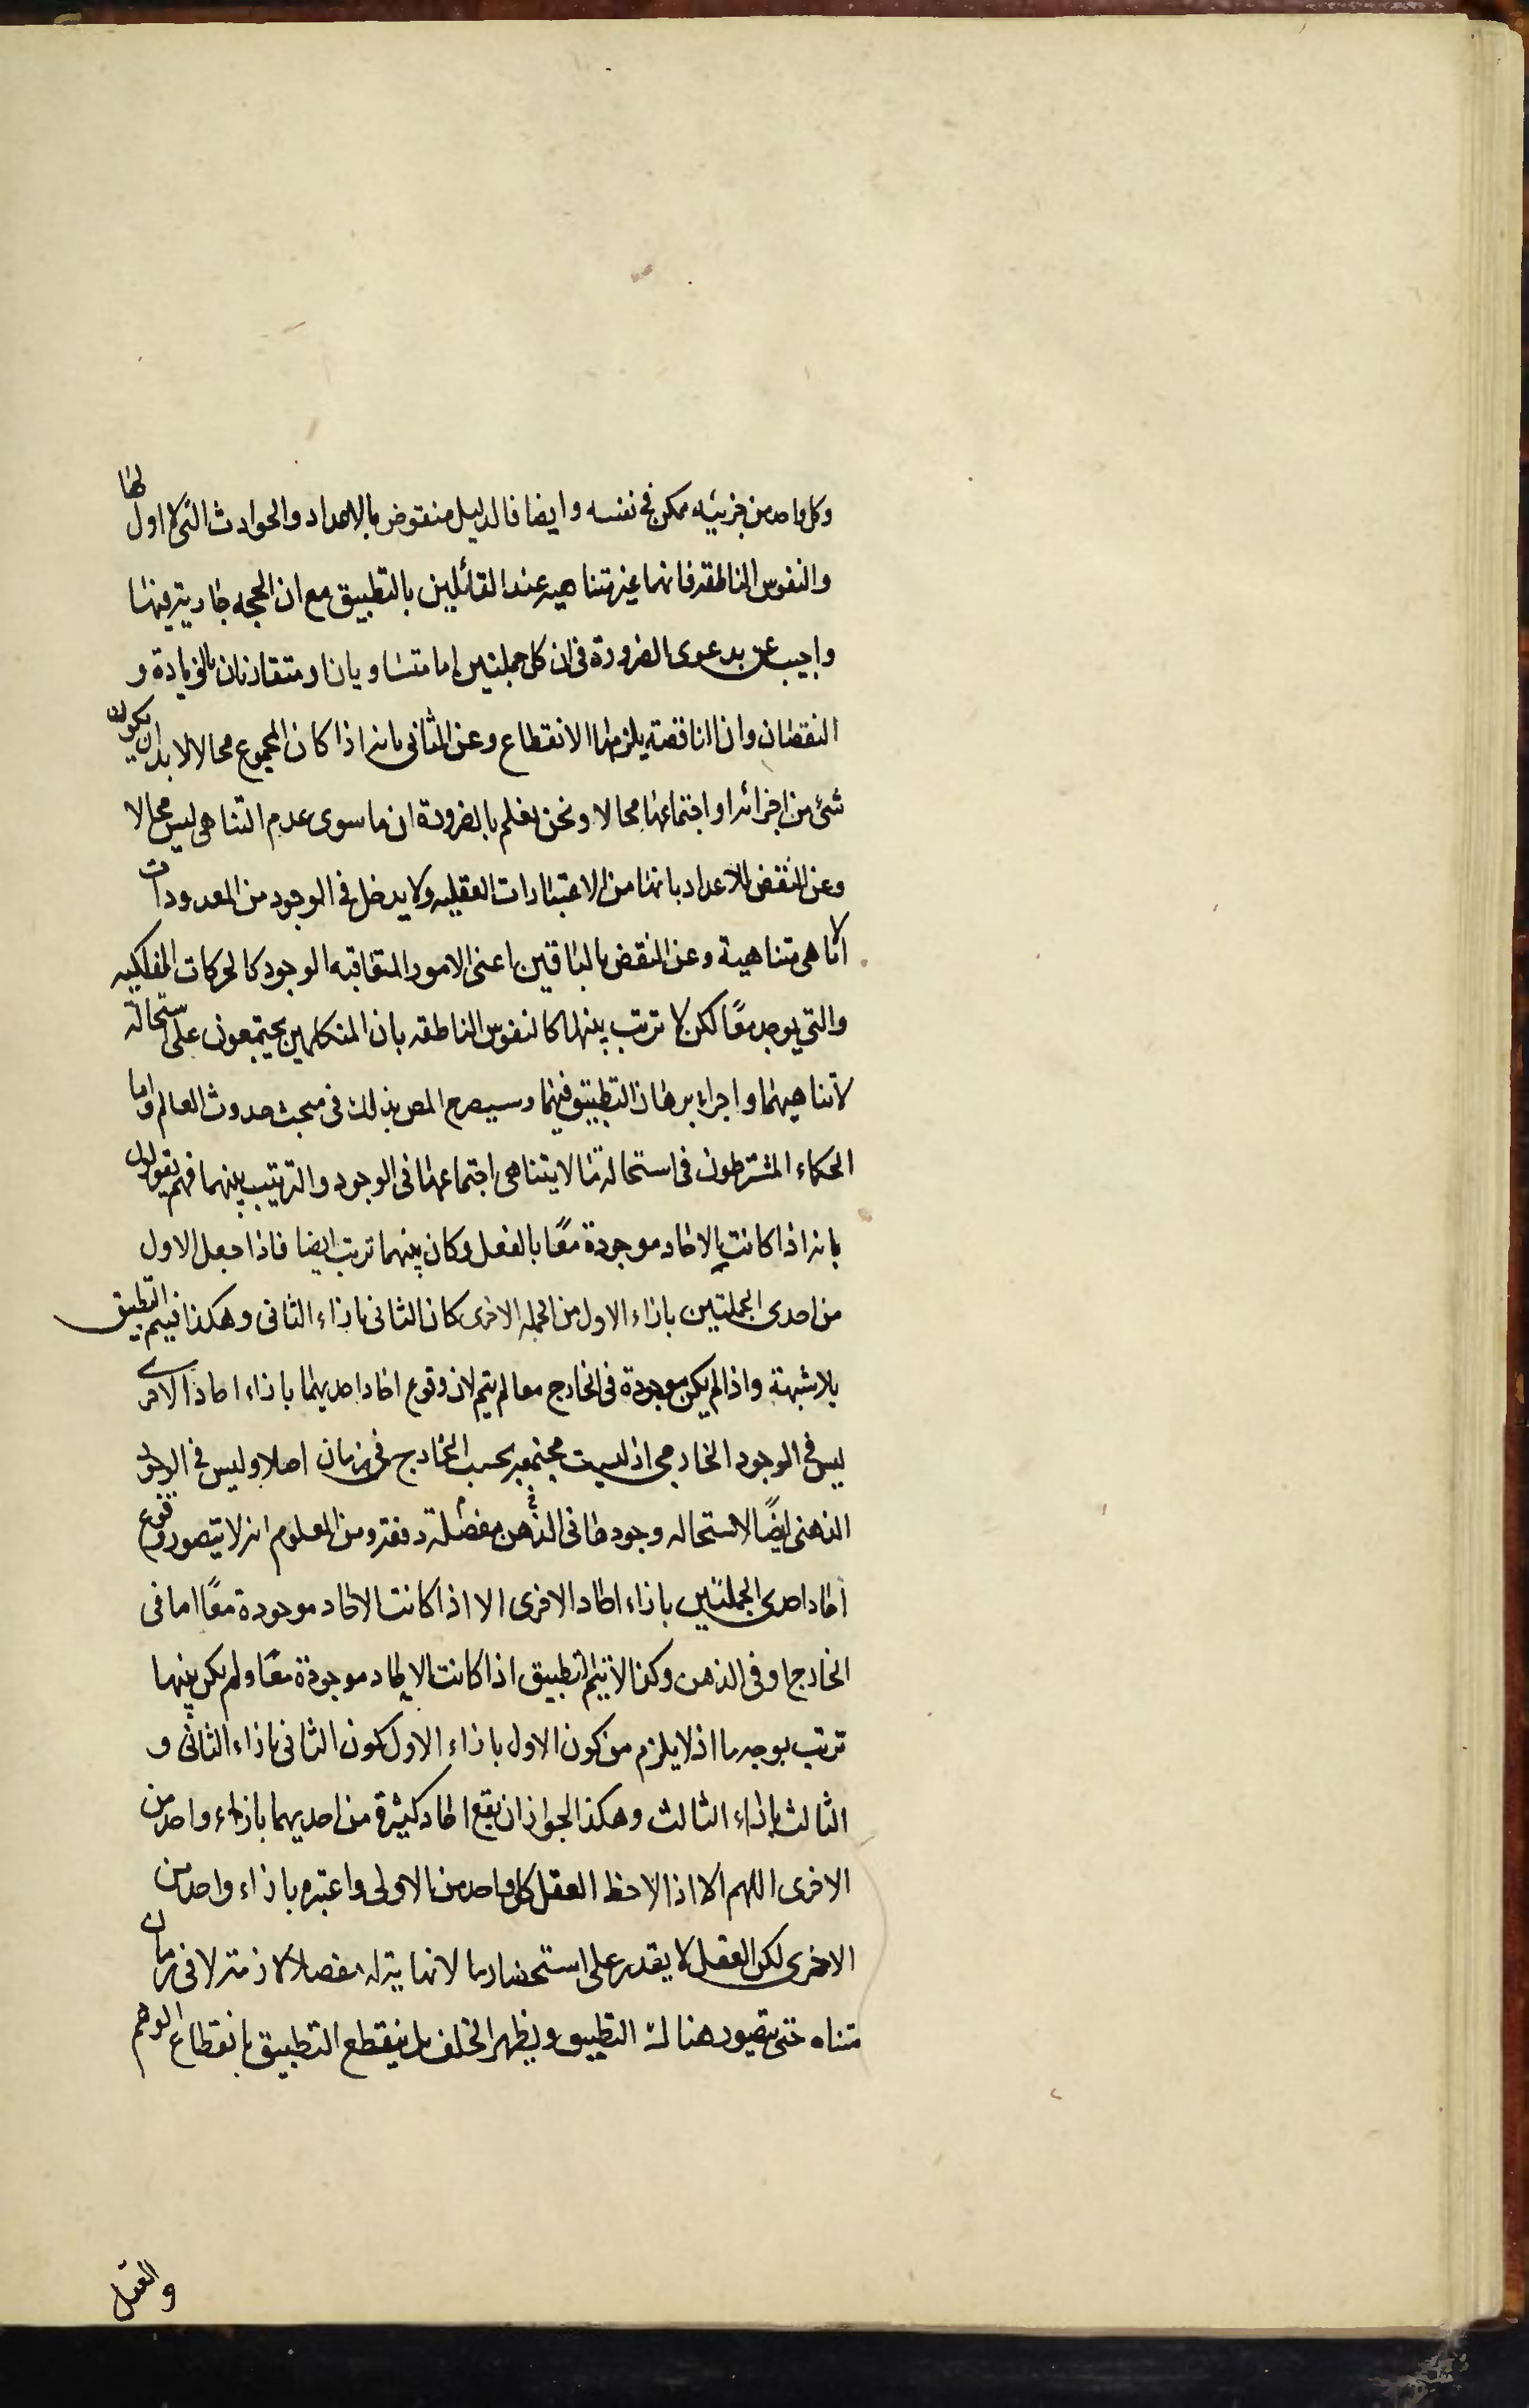 وكل واحد من جزئيه ممكن فى نفسه وايضا فالدليل منقوض بالاعداد والحوادث التى لا اول لها
والنفوس الناطقه فانها غير متناهيه عند القائلين بالتطبيق مع ان الحجه جاريه فيها
واجيب عن بدعوى الضرورة فى ان كل جملتين اما متساويان او متفاوتان بالزيادة و
النقصان وان الناقصه يلزمها الانقطاع وعن الثانى بانه اذا كان المجموع محالا لابد ان يكون
شئ من اجزائه او اجتماعها محالا ونحن نعلم بالضرورة ان ما سوى عدم التناهى ليس محالا
وعن النقض بالاعداد بانها من الاعتبارات العقليه ولا يدخل فى الوجود من المعدودات
الا ما هى متناهية وعن النقض بالباقين اعنى الامور المتعاقبه الوجود كالحركات الفلكيه
والتى يوجد معًا لكن لا ترتب بينها كالنفوس الناطقه بان المتكلمين يجتمعون على استحالة
لا تناهيهما واجراء برهان التطبيق فيهما وسيصرح المص بذلك فى مبحث حدوث العالم واما
الحكماء المشترطون فى استحالة ما لا يتناهى اجتماعها فى الوجود والترتيب بينهما فهم يقولون
بانه اذا كانت الاحاد موجودة معًا بالفعل وكان بينهما ترتب ايضا فاذا جعل الاول
من احدى الجملتين بازاء الاول من الجمله الاخرى كان الثانى بازاء الثانى وهكذا فيتم التطبيق
بلا شبهة واذا لم يكن موجودة فى الخارج معا لم يتم لان وقوع احاد احديهما بازاء احاد الاخرى
ليس فى الوجود الخارجى اذ ليست مجتمعه بحسب الخارج فى زمان اصلا وليس فى الوجود
الذهنى ايضًا لاستحاله وجودها فى الذهن مفصلة دفعه ومن المعلوم انه لا يتصور وقوع
احاد احدى الجملتين بازاء احاد الاخرى الا اذا كانت الاحاد موجودة معًا اما فى
الخارج او فى الذهن وكذا لا يتم التطبيق اذا كانت الاحاد موجودة معًا ولم يكن بينها
ترتب بوجه ما اذ لا يلزم من كون الاول بازاء الاول كون الثانى بازاء الثانى و
الثالث بازاء الثالث وهكذا لجواز ان يقع احاد كثيرة من احديهما بازاء واحد من
الاخرى اللهم الا اذا لاحظ العقل كل واحد من الاولى واعتبره بازاء واحد من
الاخرى لكن العقل لا يقدر على استحضار ما لا نهاية له مفصلا لا فى زمان
متناه حتى يتصور هناك التطبيق ويظهر الخلف بل ينقطع التطبيق بانقطاع الوهم
والعقل